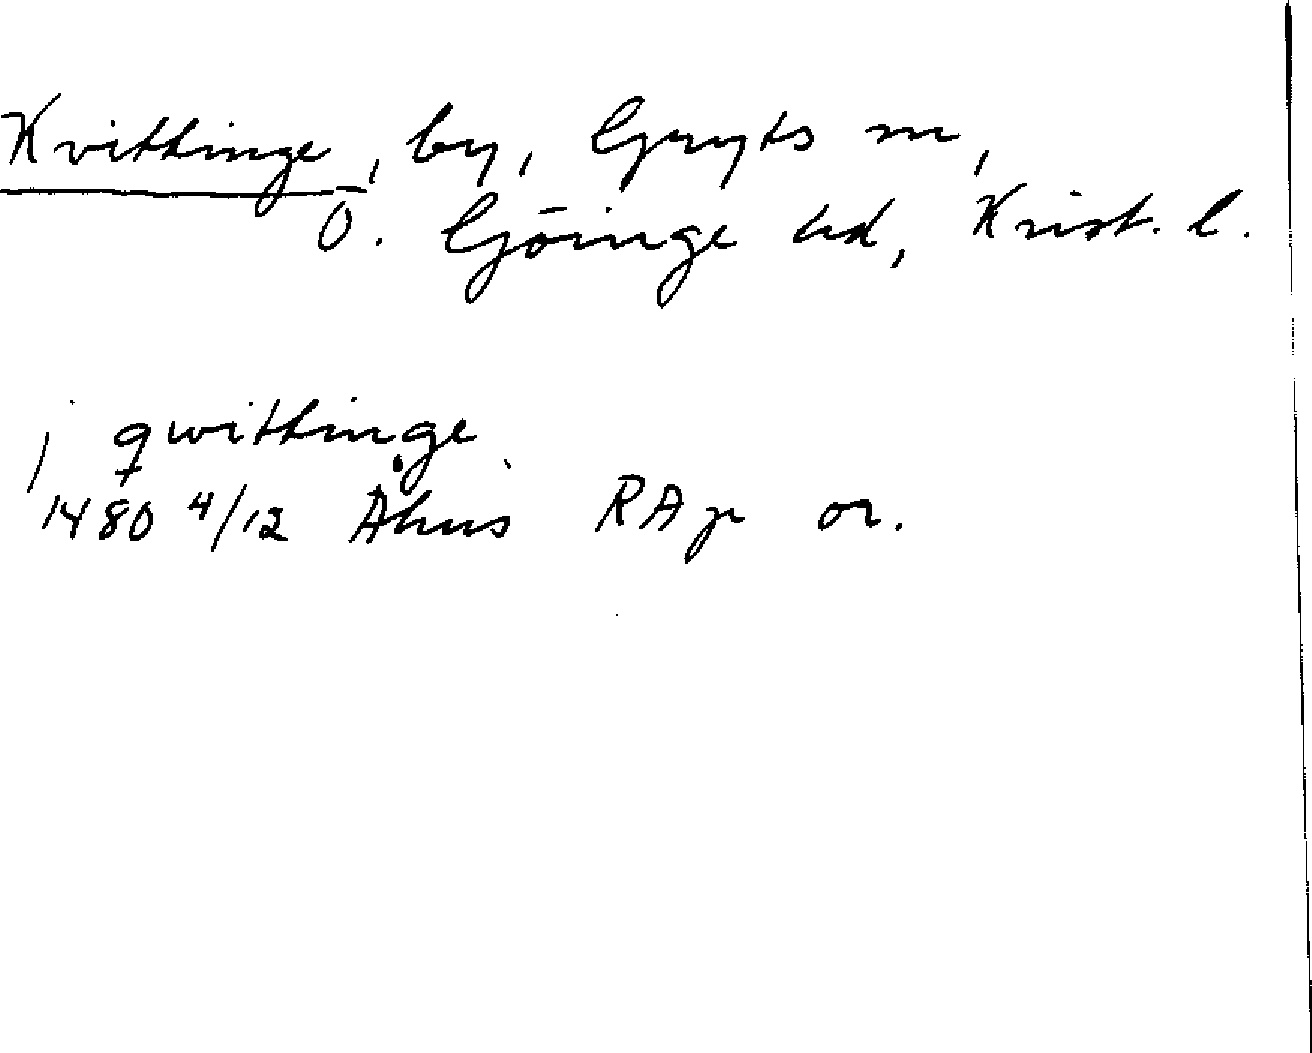 Kvittinge, by, Gryts sn,
Ö. Göinge hd, Krist. l.
j qwittinge
1480 4/12 Åhus RAp or.